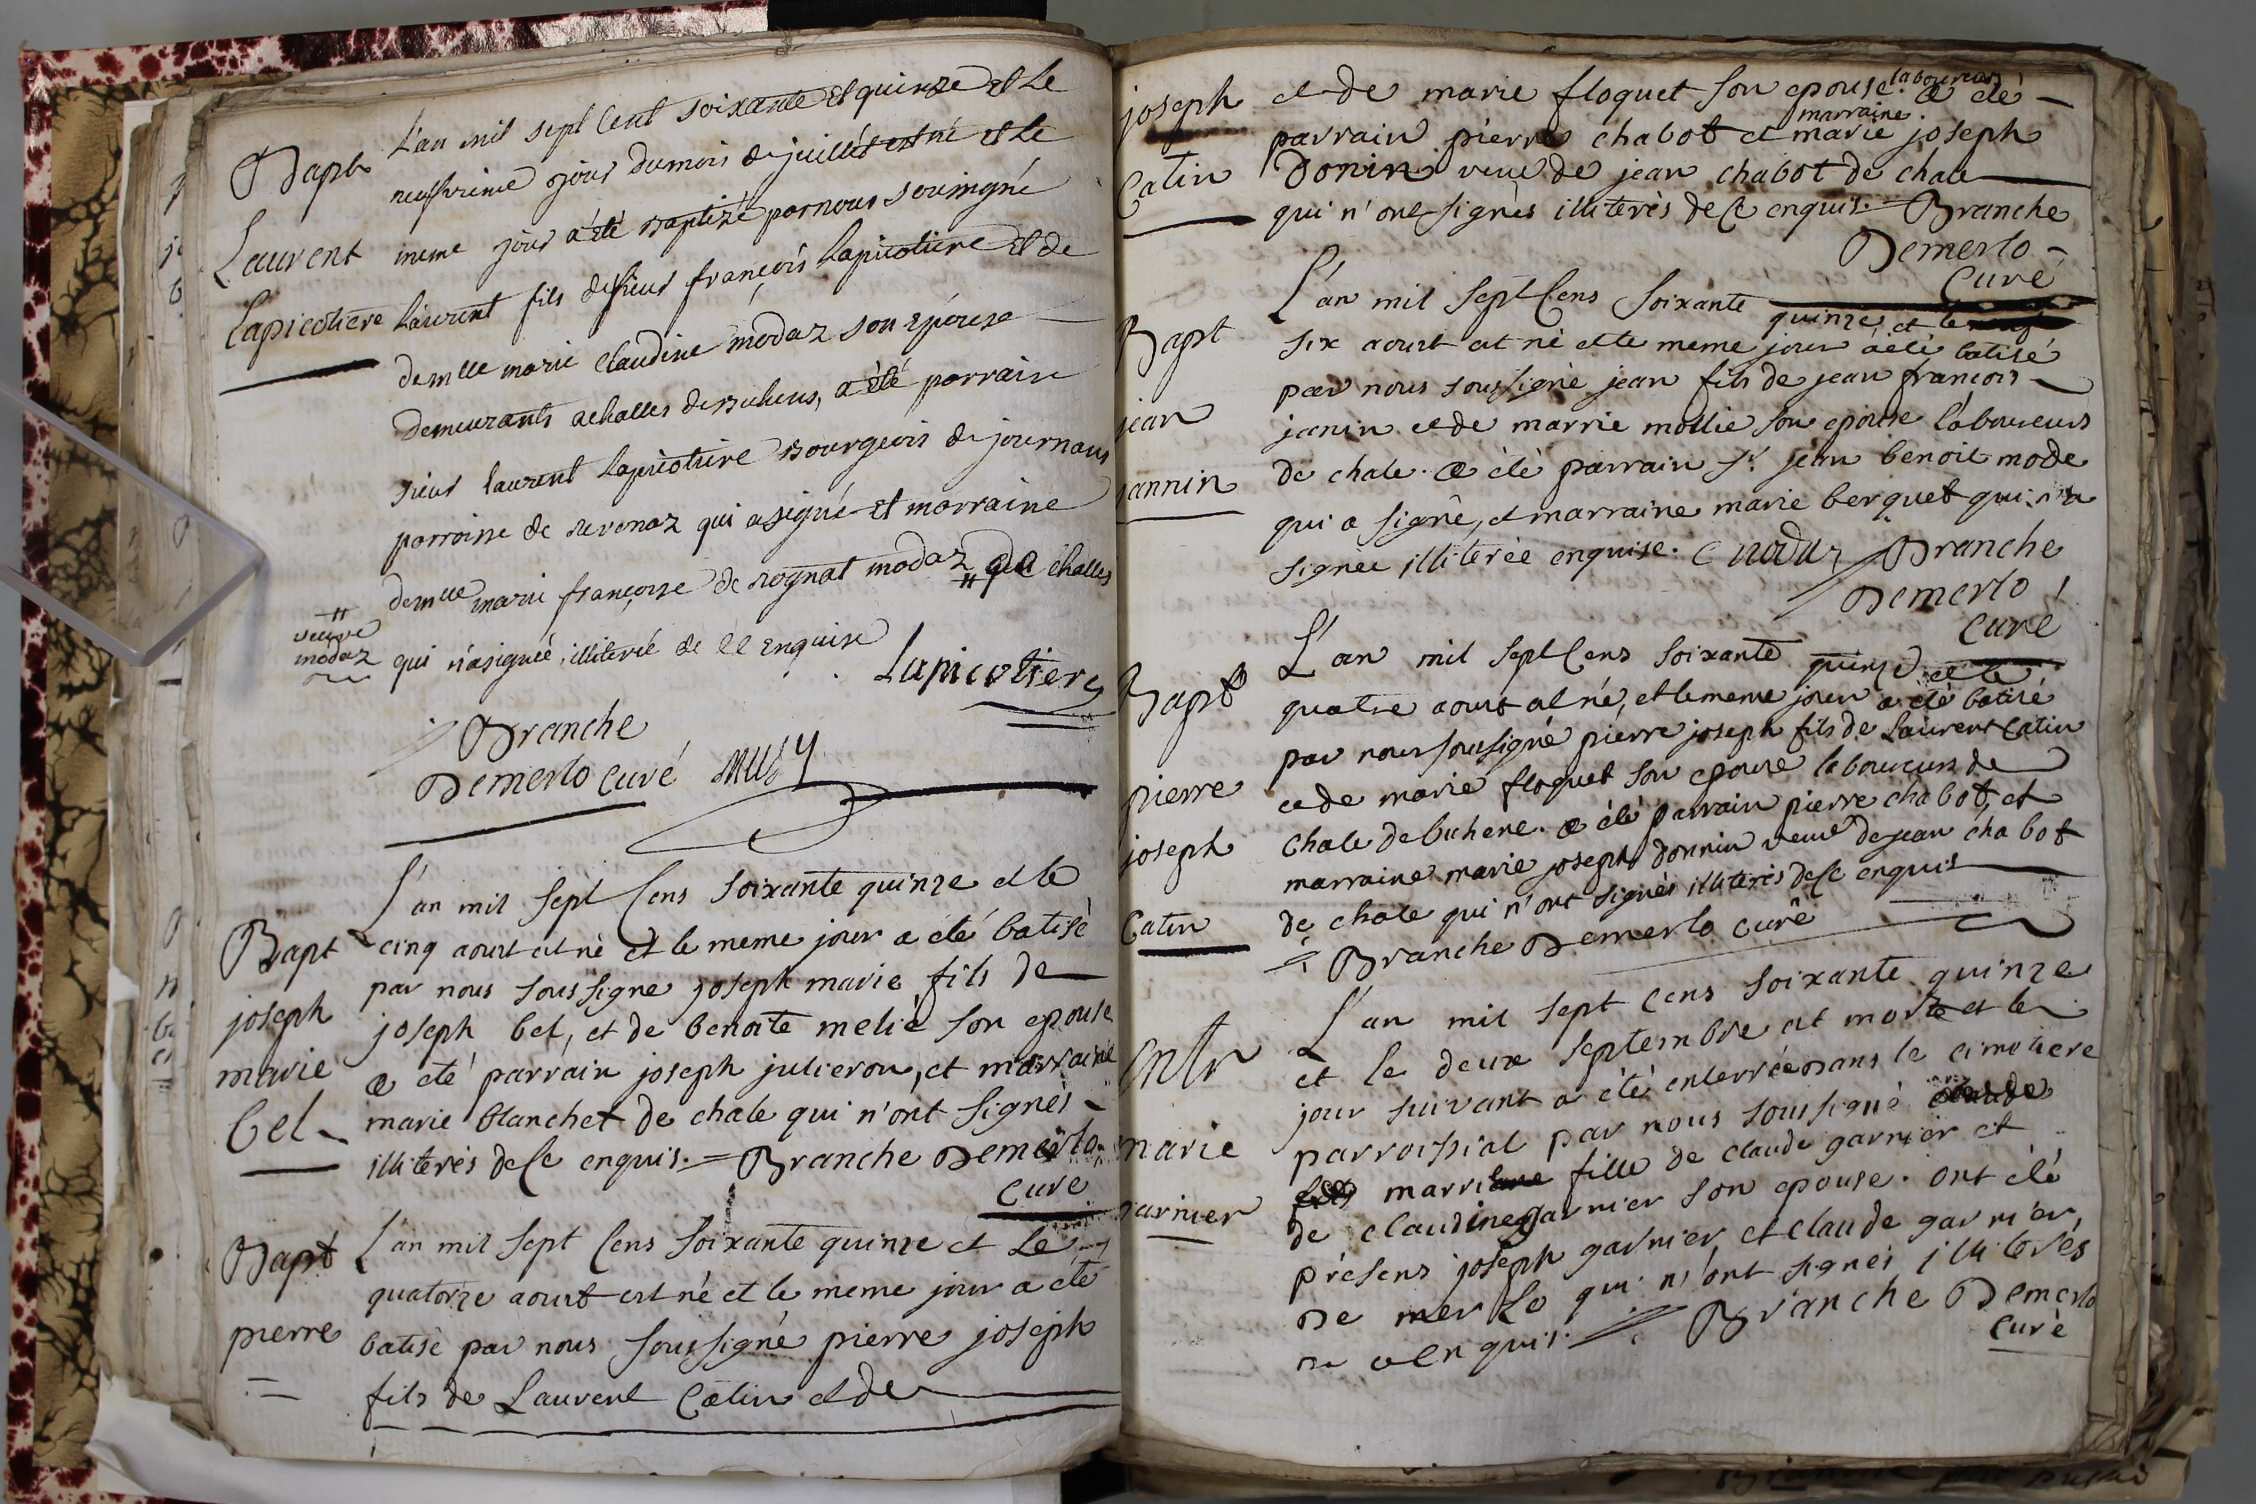 Bapt
Laurent
Lapicotiere
L'an mil sept Cent soixante et quinze et le
neufvieme jour du mois de juillét est né et le
meme jour a été Baptizé par nous sousigné
Laurent fils de sieur françois Lapicotiere et de
demlle marie Claudine modaz son épouse
demeurants a challes de Buhens, a été parrain
sieur laurent Lapicotiere Bourgeois de journans
parroisse de revonaz qui a signé et marraine
demlle marie françoise de rognat modaz # de challes
# veuve
modaz
qui n'a signée illiterée de ce enquise
Lapicotiere
Branche
Demerlo curé
Bapt
joseph
marie
bel
L'an mil sept Cens soixante quinze et le
cinq aoust est né et le meme jour a été batisé
par nous soussigne joseph marie fils de
joseph bel, et de benoite melie son epouse
a eté parrain joseph julieron, et marraine
marie blanchet de chale qui n'ont signés
illiterés de ce enquis. Branche Demerlo
Curé
Bapt
pierre
L'an mil sept Cens soixante quinze et le
quatorze aoust est né et le meme jour a été
batisé par nous soussigné pierre joseph
fils de Laurent Catin et de
joseph
Catin
et de marie floquet son epouse laboureurs a été
parrain pierre chabot et marraine marie joseph
Donin veuve de jean chabot de chale
qui n'ont signés illiterés de ce enquis. Branche
Demerlo
Curé
Bapt
jean
jannin
L'an mil sept Cens soixante quinze et le
six aoust est né et le meme jour a été batisé
par nous soussigné jean fils de jean francois
janin et de marrie mollie son epouse laboureurs
de chale. a été parrain Sr. jean benoit mode
qui a signé, et marraine marie berquet qui n'a
signée illiterée enquise. modaz Branche
Demerlo
Curé
Bapt
pierre
joseph
Catin
L'an mil sept Cens soixante quinze et le
quatre aoust est né, et le meme jour a été batisé
par nous soussigné pierre joseph fils de Laurent Catin
et de marie floquet son epouse laboureurs de
Chale de buhene. a été parrain pierre chabot, et
marraine marie joseph donnin veuve de jean chabot
de chale qui n'ont signés illiterés de ce enquis
Branche Demerlo curé
Entr
marie
garnier
L'an mil sept cens soixante quinze
et le deux septembre est morte et le
jour suivant a été enterrée dans le cimetiere
parroissial par nous soussigné
marri fille de claude garnier et
de claudine garnier son epouse. ont été
présens joseph garnier et claude garnier
De merlo qui n'ont signés illiterés
enquis. Branche Demerlo
curé